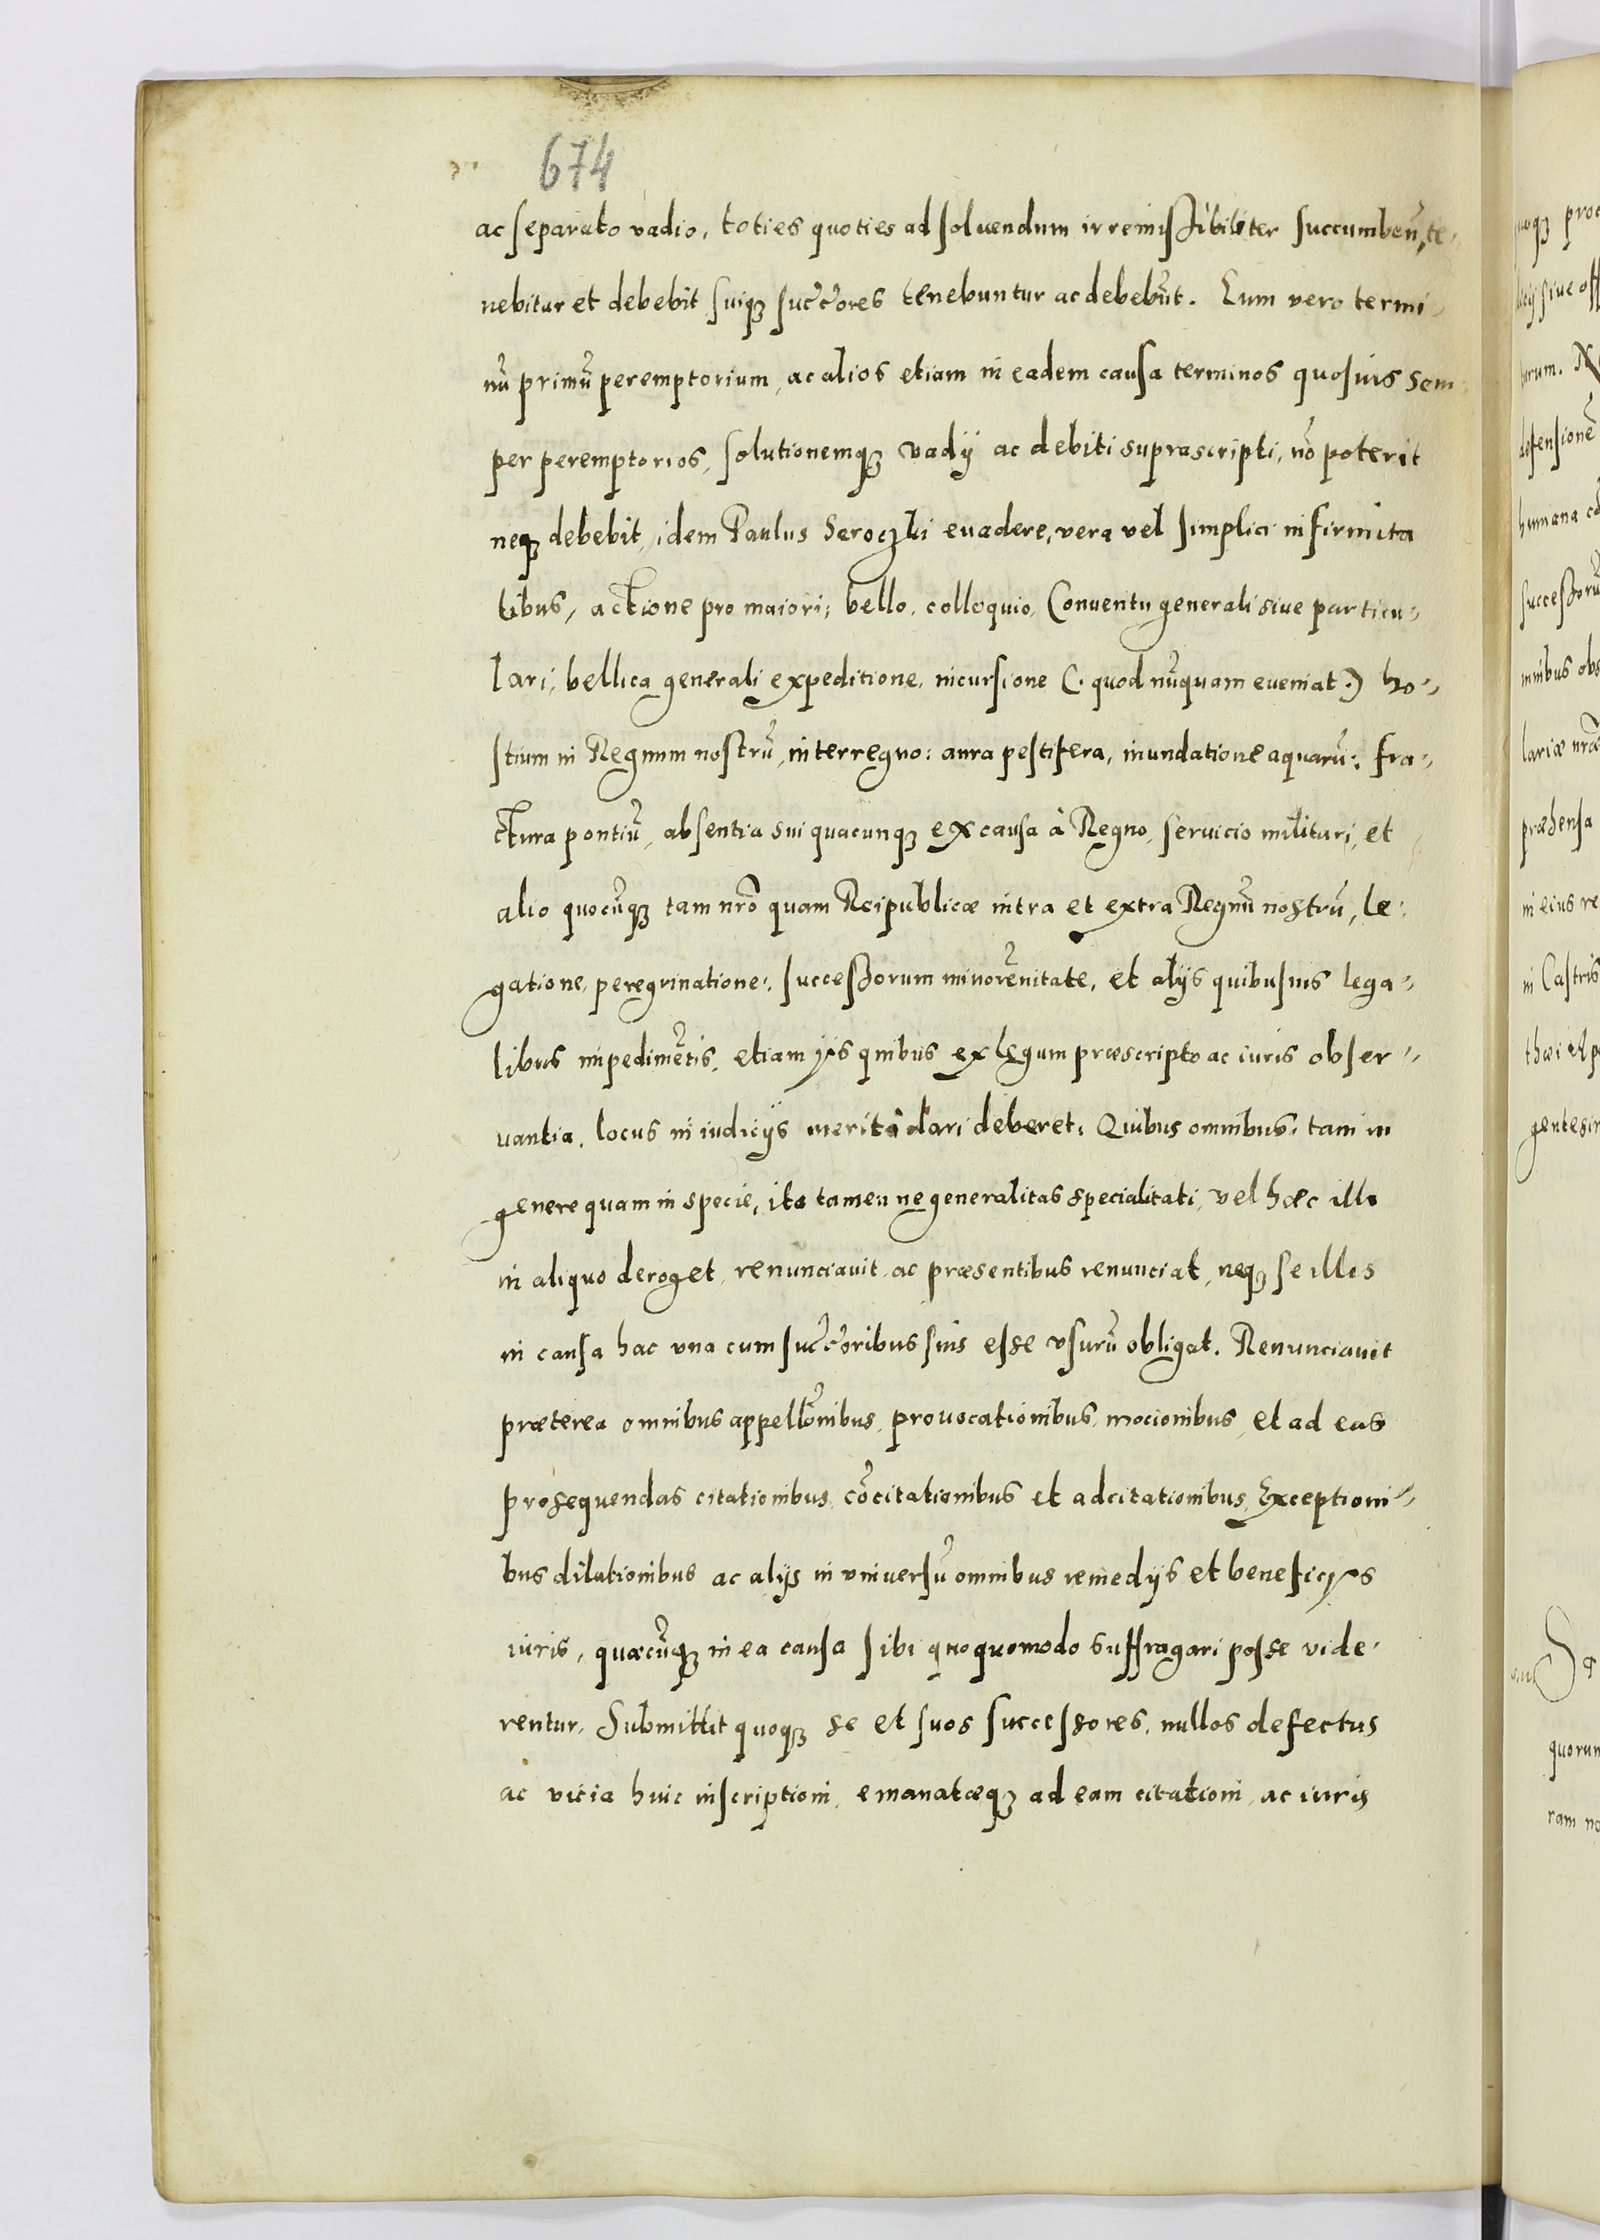 674
ac separato vadio, toties quoties ad soluendum irremissibiliter succumbeñ, te-
nebitur et debebit suiq₃ succ̃ores tenebuntur ac debebũt. Eum vero termi-
nũ primũ peremptorium, ac alios etiam in eadem causa terminos quosuis sem
per peremptorios, solutionemq₃ vadij ac debiti suprascripti, nõ poterit
neq₃ debebit, idem Paulus Seroczki euadere, vera vel simplici infirmita
tibus, actione pro maiori, bello, colloquio, Conuentu generali siue particu-
lari, bellica generali expeditione, incursione (. quod nũquam eueniat .) ho-
stium in Regnum nostrũ, interregno: aura pestifera, inundatione aquarũ: fra-
ctura pontiũ, absentia sui quacunq₃ ex causa à Regno, seruicio militari, et
alio quocũq₃ tam nrõ quam Reipublicæ intra et extra Regnũ nostrũ, le-
gatione, peregrinatione, successorum minorẽnitate, et alijs quibusuis lega-
libus impedimẽtis, etiam ijs quibus ex legum præscripto ac iuris obser-
uantia, locus in iudicijs meritò dari deberet: Quibus omnibus, tam in
genere quam in specie, ita tamen ne generalitas specialitati, vel hæc illi
in aliquo deroget, renunciauit, ac præsentibus renunciat, neq₃ se illis
in causa hac vna cum succ̃oribus suis esse vsurũ obligat. Renunciauit
præterea omnibus appellõnibus, prouocationibus, mocionibus, et ad eas
prosequendas citationibus, cõcitationibus et adcitationibus, Exceptioni-
bus dilationibus ac alijs in vniuersũ omnibus remedijs et beneficijs
iuris, quæcũq₃ in ea causa sibi quoquomodo suffragari posse vide-
rentur. Submittit quoq₃ se et suos successores, nullos defectus
ac vicia huic inscriptioni, emanatæq₃ ad eam citationi, ac iuris